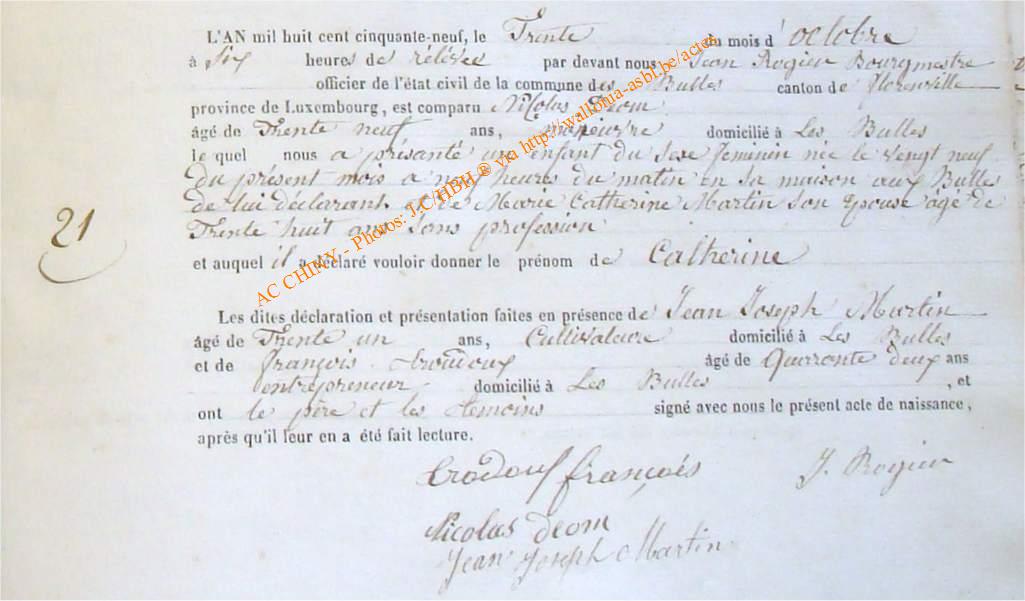 L'AN mil huit cent cinquante-neuf, le Trente du mois d' octobre
à Six heures de rélévée par devant nous Jean Rogier Bourgmestre
officier de l'état civil de la commune des Bulles canton de florenville
province de Luxembourg, est comparu Nicolas Deom
âgé de Trente neuf ans, domicilié à Les Bulles
le quel nous a présanté un enfant du sexe feminin née le vengt neuf
du présent mois a neuf heures du matin en sa maison aux Bulles
de lui déclarant et de Marie Catherine Martin son epouse agé de
Trente huit ans sans profession
21
et auquel il a déclaré vouloir donner le prénom de Catherine
Les dites déclaration et présentation faites en présence de Jean Joseph Martin
âgé de Trente un ans, Cultivateure domicilié à Les Bulles
et de françois âgé de Quarronte deux ans
entrepreneur domicilié à Les Bulles , et
ont le père et les temoins signé avec nous le présent acte de naissance,
après qu'il leur en a été fait lecture.
françois J. Rogier
Nicolas Deom
Jean Joseph Martin
AC CHINY - Photos: J.C/HBH ® via http://wallonia-asbl.be/actes